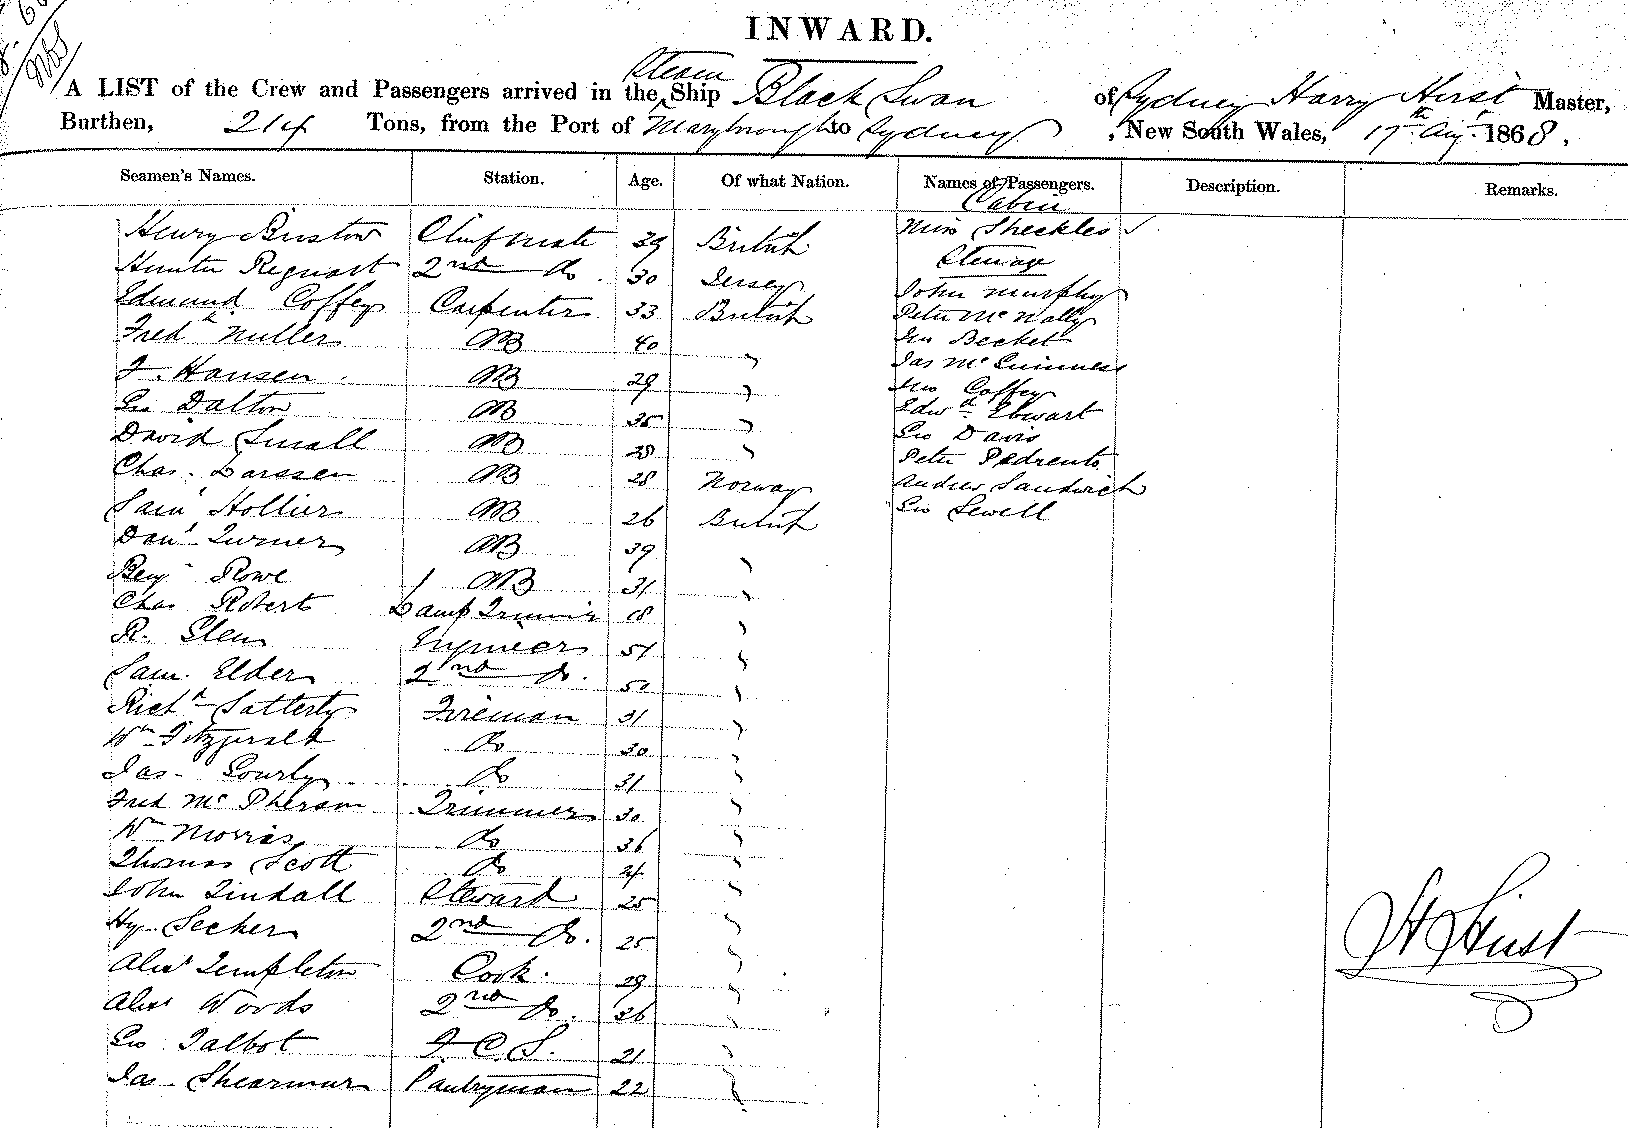 INWARD.
Steam
A LIST of the Crew and Passengers arrived in the Ship Black Swan of Sydney Harry Hirst Master,
Burthen, 214 Tons, from the Port of Maryborough to Sydney, New South Wales, 17th Aug. 1868.
Seamen's Names. Station. Age. Of what Nation. Names of Passengers. Description. Remarks.
Cabin
Henry Bristow Chief mate 39 British Miss Sheckles
Steerage
2nd Do. 30 Jersey John Murphy
Edmund Coffey Carpenter 33 British Peter McNally
Fredk Muller AB 40 " Becket
Jas McGuinness
F. Hansen AB 29 " Mrs Coffey
Geo Dalton AB 35 " Edwd Ebwart
David Small AB 28 " Geo Davis
Peter Pedrento
Chas. Larssen AB 28 Norway Andrew Sandwich
Saml Hollier AB 26 British Geo Sewell
Danl Turner AB 39 "
Benj. Rowe AB 31 "
Chas Roberts Lamp Trimmer 18 "
R. Glen Engineer 51 "
Sam. Elder 2nd Do. 50 "
Richd Satterly Fireman 31 "
Wm Fitzgerald Do 30 "
Jas. Gourly Do 31 "
Fred McPherson Trimmer 30 "
Wm Morris Do 36 "
Thomas Scott Do 24 "
John Tindall Steward 25 "
Hy. Secker 2nd Do. 25 "
Alexr Templeton Cook. 29 "
Alexr Woods 2nd Do. 26 "
Geo Talbot F.C.S. 21 "
Jas. Shearmur Pantryman 22 "
H Hirst